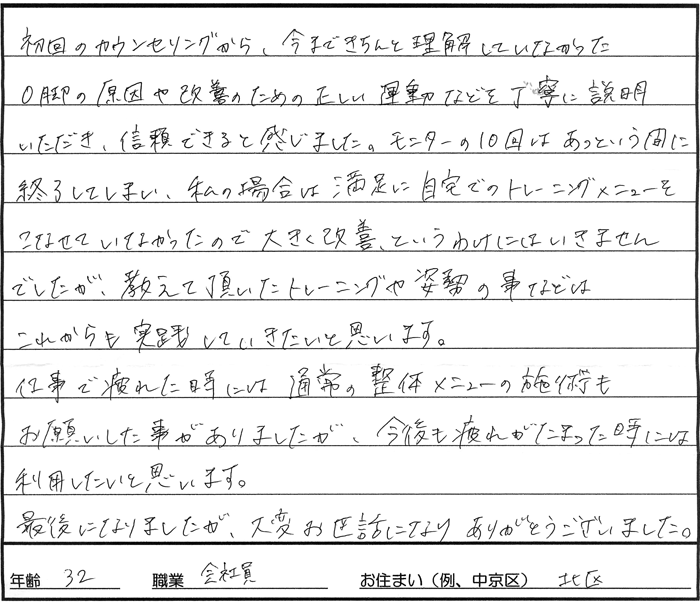 初回のカウンセリングから、今まできちんと理解していなかった
O脚の原因や改善のための正しい運動などを丁寧に説明
いただき、信頼できると感じました。モニターの10回はあっという間に
終了してしまい、私の場合は満足に自宅でのトレーニングメニューを
こなせていなかったので大きく改善、というわけにはいきません
でしたが、教えて頂いたトレーニングや姿勢の事などは
これからも実践していきたいと思います。
仕事で疲れた時には通常の整体メニューの施術も
お願いした事がありましたが、今後も疲れがたまった時には
利用したいと思います。
最後になりましたが、大変お世話になりありがとうございました。
年齢 32 職業 会社員 お住まい（例、中京区） 北区